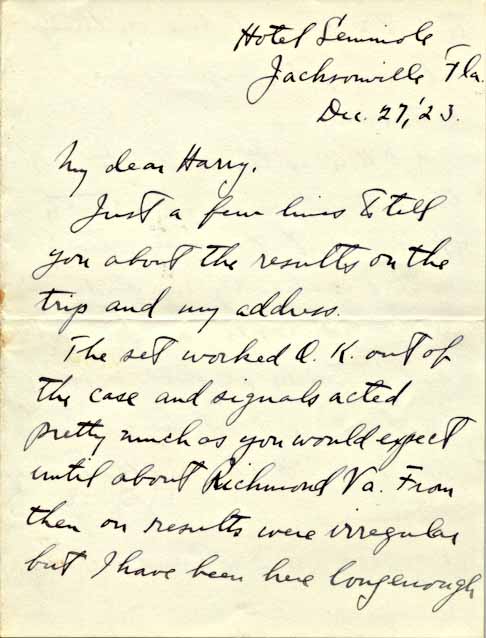 Hotel Seminole
Jacksonville Fla.
Dec. 27, '23.
My dear Harry.
Just a few lines to tell
you about the results on the
trip and my address.
The set worked O.K. out of
the case and signals acted
pretty much as you would expect
until about Richmond Va. From
then on results were irregular
but I have been here long enough